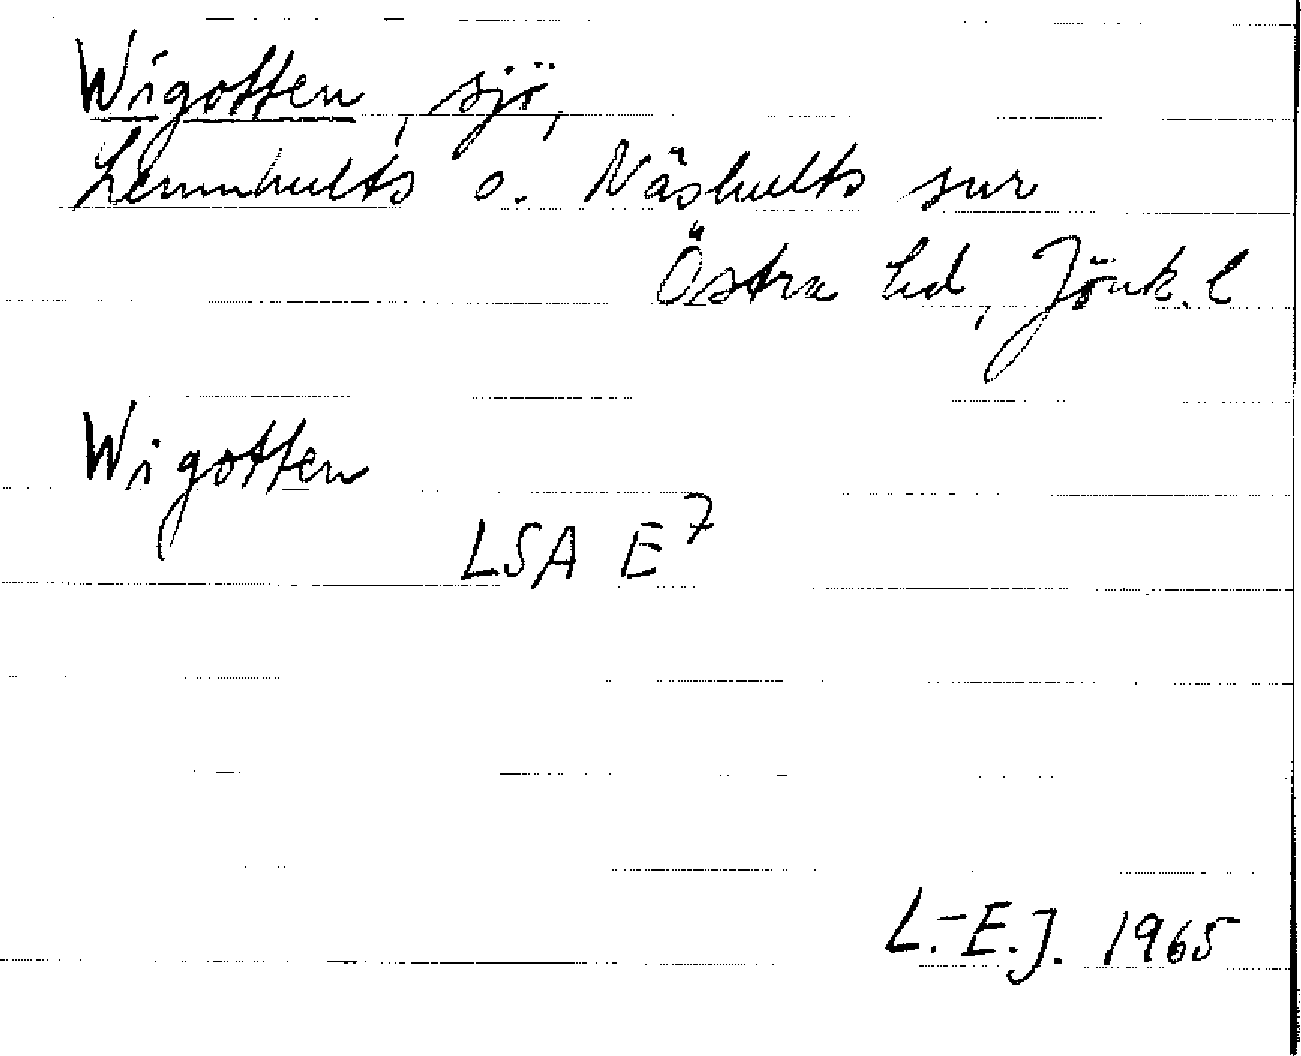 Wigotten, sjö,
Lemnhults o. Näshults snr
Östra hd, Jönk. l
Wigotten
LSA E7
L.-E.J. 1965